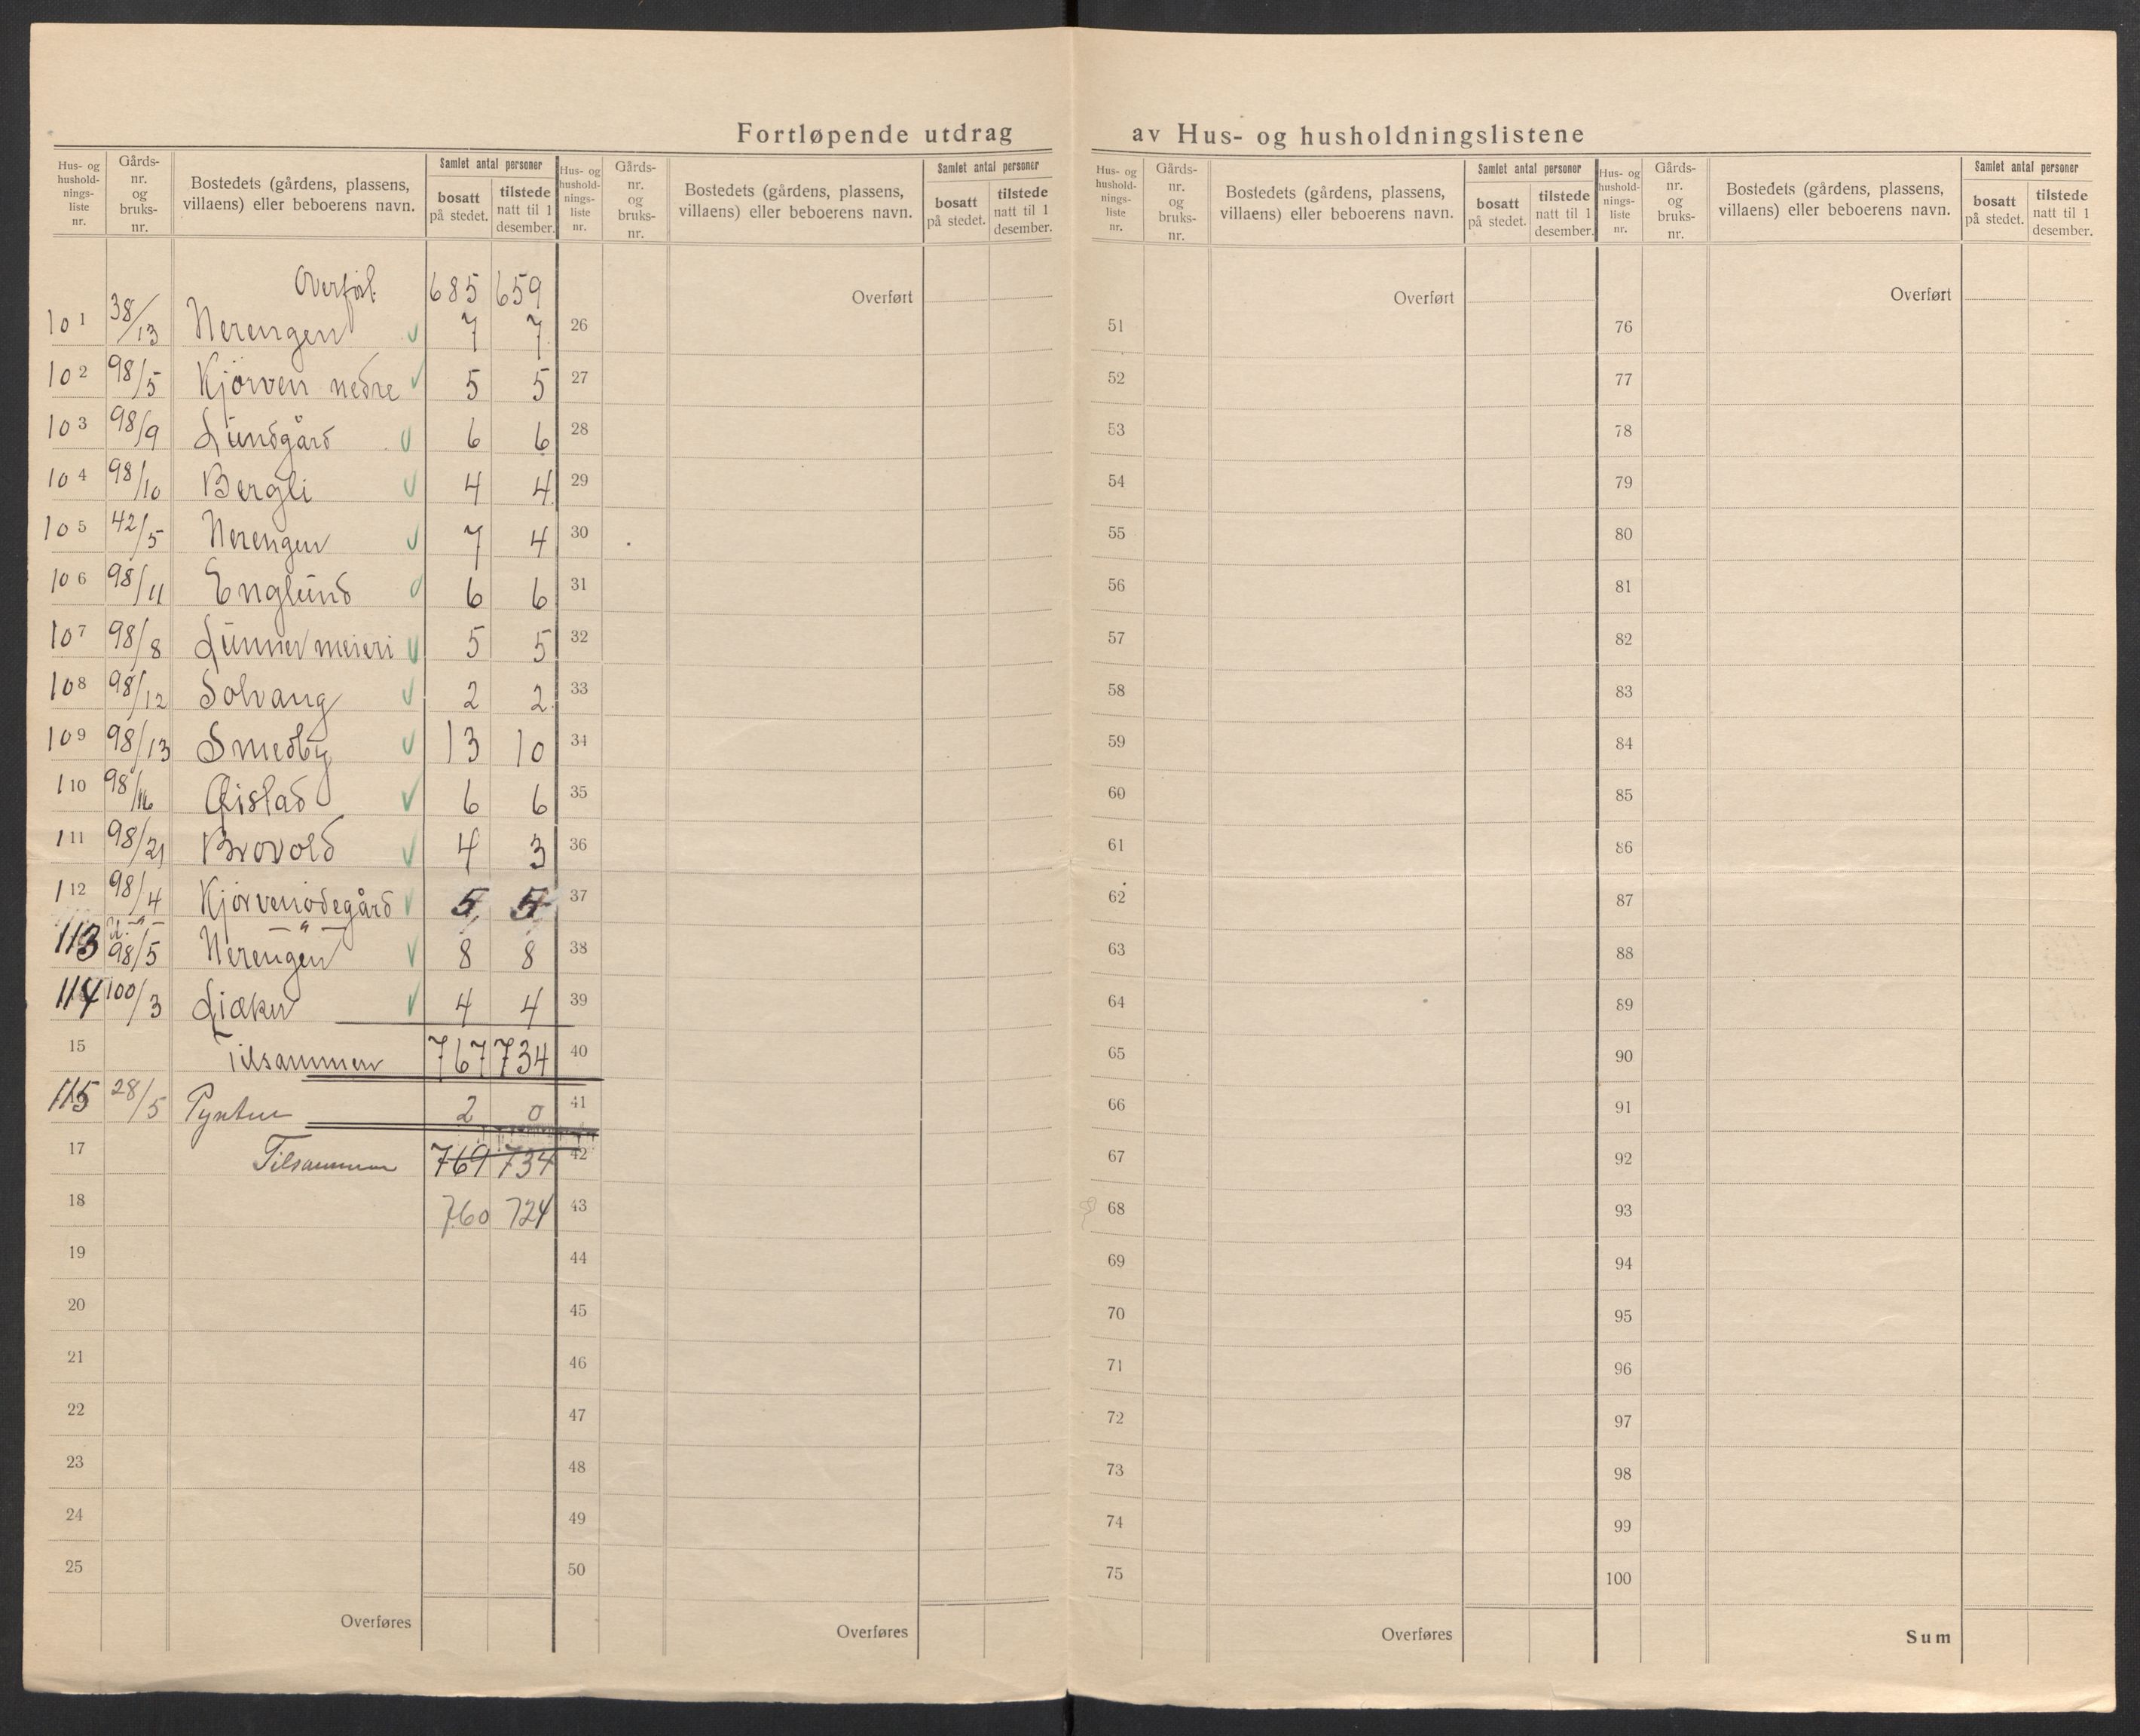 Fortløpende utdrag av Hus- og husholdningslistene
Hus- og hushold-nings-liste nr. Gårds-nr. og bruks-nr. Bostedets (gårdens, plassens, villaens) eller beboerens navn. Samlet antal personer bosatt på stedet. tilstede natt til 1 desember.
Overført 685 659
101 38/13 Nerengen 7 7
102 98/5 Kjørven nedre 5 5
103 98/9 Lundgård 6 6
104 98/10 Bergli 4 4
105 42/5 Nerengen 7 4
106 98/11 Englund 6 6
107 98/8 Lunner meieri 5 5
108 98/12 Solvang 2 2
109 98/13 Smedby 13 10
110 98/16 6 6
111 98/21 Brovold 4 3
112 98/4 Kjørvenødegård 5 5
113 98/5 Nerengen 8 8
114 100/3 Liaker 4 4
15 Tilsammen 767 734
115 28/5 Pynten 2 0
17 Tilsammen 769 734
18 760 724
19
20
21
22
23
24
25
Overføres
Hus- og hushold-nings-liste nr. Gårds-nr. og bruks-nr. Bostedets (gårdens, plassens, villaens) eller beboerens navn. Samlet antal personer bosatt på stedet. tilstede natt til 1 desember.
Overført
26
27
28
29
30
31
32
33
34
35
36
37
38
39
40
41
42
43
44
45
46
47
48
49
50
Overføres
Hus- og hushold-nings-liste nr. Gårds-nr. og bruks-nr. Bostedets (gårdens, plassens, villaens) eller beboerens navn. Samlet antal personer bosatt på stedet. tilstede natt til 1 desember.
Overført
51
52
53
54
55
56
57
58
59
60
61
62
63
64
65
66
67
68
69
70
71
72
73
74
75
Overføres
Hus- og hushold-nings-liste nr. Gårds-nr. og bruks-nr. Bostedets (gårdens, plassens, villaens) eller beboerens navn. Samlet antal personer bosatt på stedet. tilstede natt til 1 desember.
Overført
76
77
78
79
80
81
82
83
84
85
86
87
88
89
90
91
92
93
94
95
96
97
98
99
100
Sum